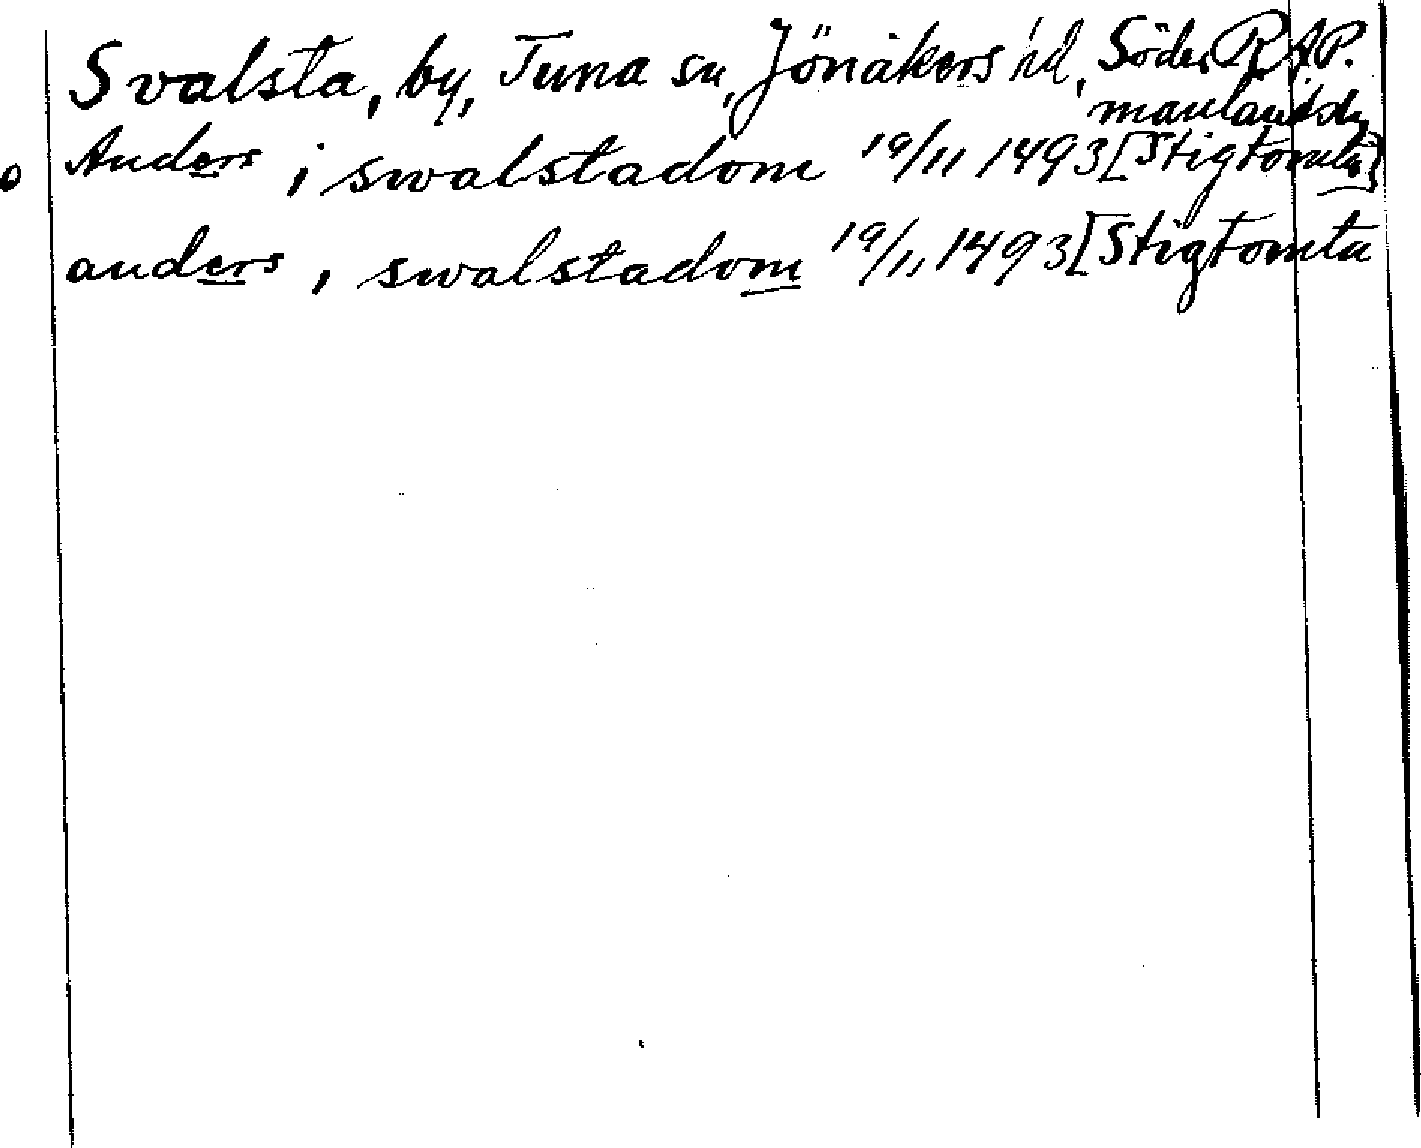 Svalsta, by, Tuna sn, Jönåkers hd, Söder R.A.P.
manlands l.
Anders i swalstadom 19/11 1493 [Stigtomta]
anders i swalstadom 19/11 1493 [Stigtomta